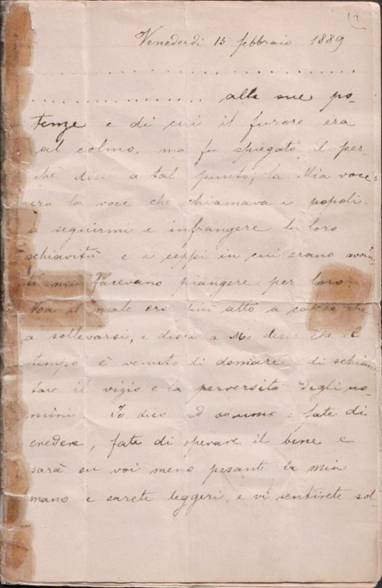 Venederdì 15 febbraio 1889
. . . . . . . . . . . . . . . . . . . . . . . .
. . . . . . . . . . . . . alle sue po-
tenze e di cui il furore era
al colmo, ma fu spiegato il per
chè dissi a tal punto, la Mia voce
era la voce che chiamava i popoli
a seguirmi e infrangere la loro
schiavitù e i ceppi in cui erano
facevano piangere per loro
il male era più alto a
a sollevarsi, e dissi a Me dissi che il
tempo è venuto di domare e di schian
tare il vizio e la perversità degli uo
mini. Io dico fate di
credere, fate di operare il bene e
sarà su voi meno pesante la mia
mano e sarete leggeri, e vi sentirete sol